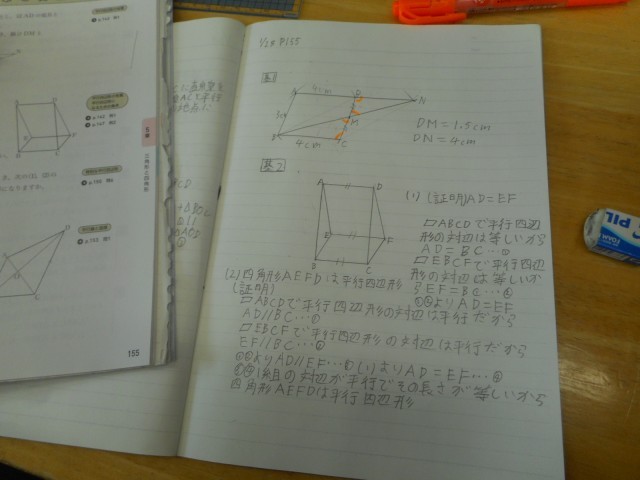 1/28 P155
基1
4cm
A
D
N
3cm
M
B
4cm
C
DM = 1.5cm
DN = 4cm
基2
A
D
E
F
B
C
(1) (証明) AD = EF
□ABCDで平行四辺
形の対辺は等しいから
AD = BC…①
□EBCFで平行四辺
形の対辺は等しいか
らEF = BC…②
①②よりAD = EF
(2) 四角形AEFDは平行四辺形
(証明)
□ABCDで平行四辺形の対辺は平行だから
AD//BC…①
□EBCFで平行四辺形の対辺は平行だから
EF//BC…②
①②よりAD//EF…③ (1)よりAD = EF…④
③④1組の対辺が平行でその長さが等しいから
四角形AEFDは平行四辺形
155
三角形と四角形
PIL